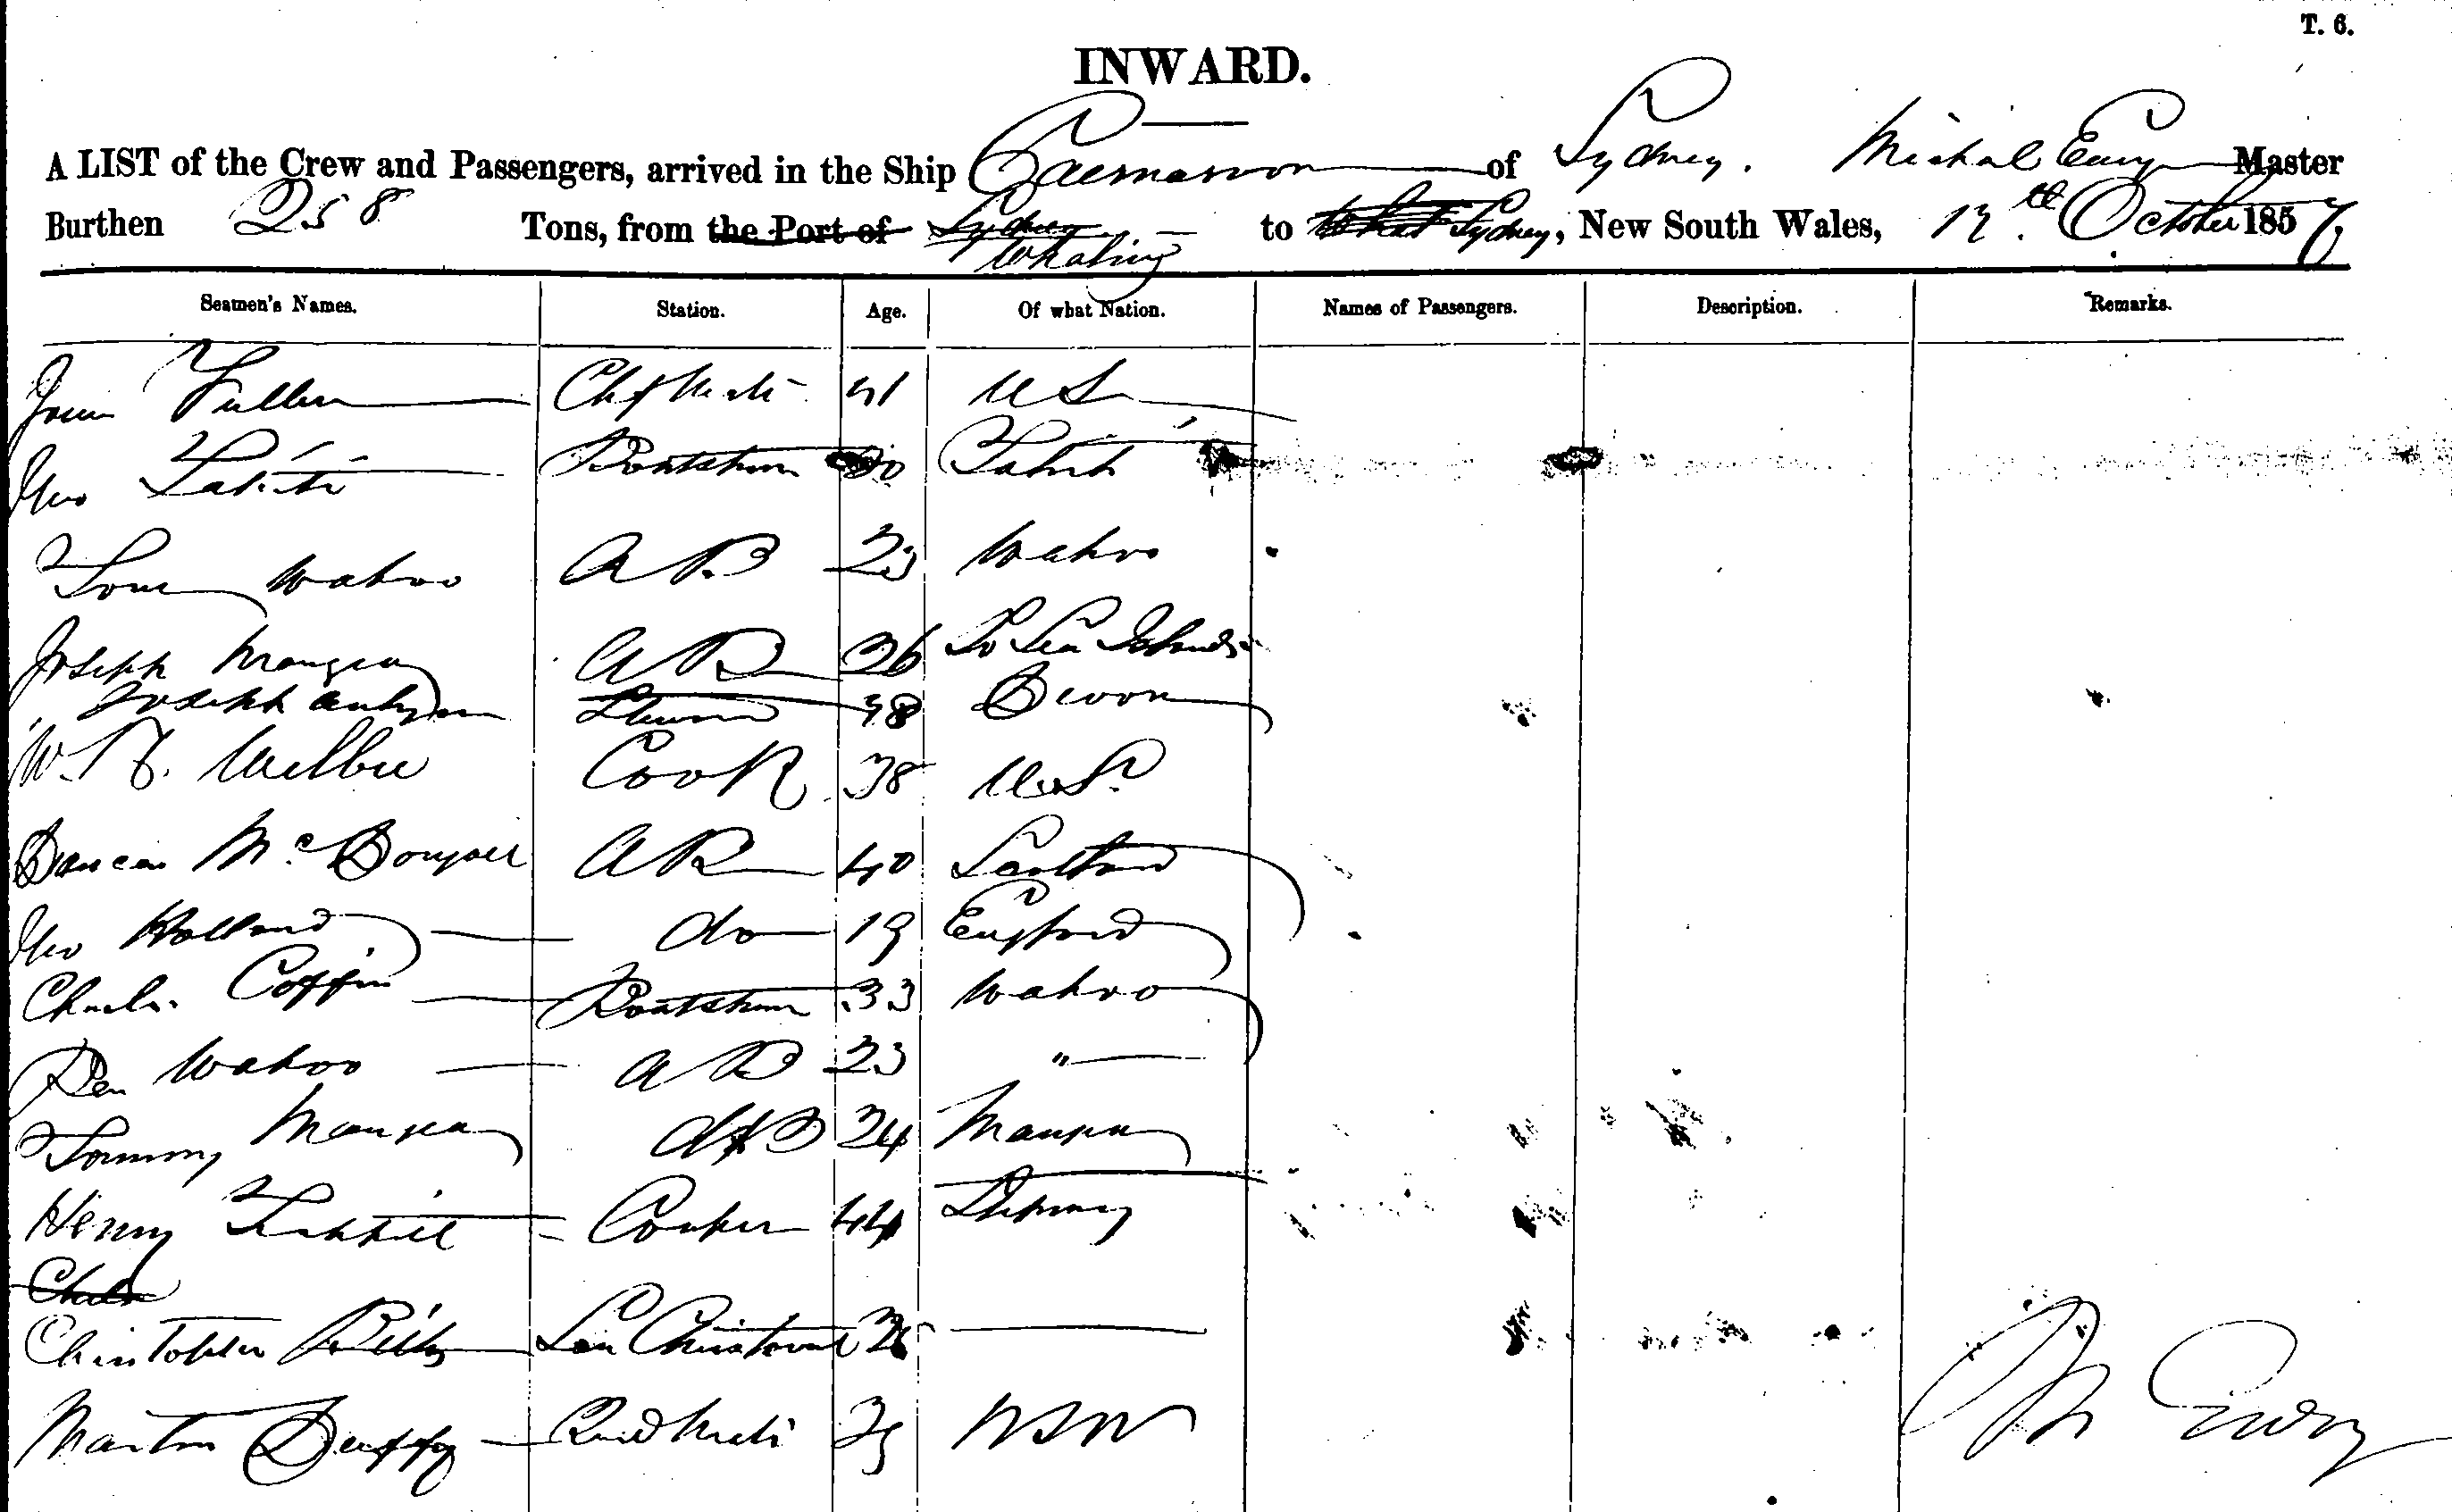 T. 6.
INWARD.
A LIST of the Crew and Passengers, arrived in the Ship Caernarvon of Sydney. Michal Master
Burthen 258 Tons, from the Port of Sydney Whaling to Sydney, New South Wales, 12th October 1857
Seamen's Names. Station. Age. Of what Nation. Names of Passengers. Description. Remarks.
Fuller Chf Mate 41 U S
Geo Tahiti Boatsteerer 30 Tahiti
Tom Wahoo A B 23 Wahoo
Joseph Mangea A B 36 So Sea Islands
Joseph Steward 38 Devon
W. Cook 38 U.S.
Duncan McDougall A B 40 Scotland
Geo Holland do 19 England
Charles Coffin Boatsteerer 33 Wahoo
Ben Wahoo A B 23 "
Tommy Mangea A B 24 Mangea
Henry Cooper 44
Christopher San Christoval
Martin Duffy 2nd Mate NSW